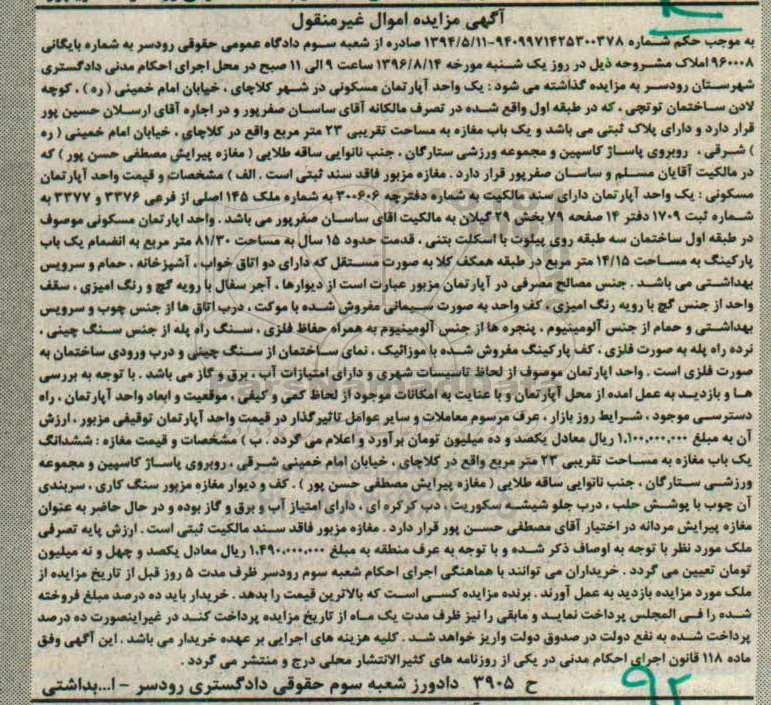 آگهی مزایده اموال غیرمنقول
به موجب حکم شماره ۹۴۰۹۹۷۱۴۲۵۳۰۰۳۷۸-۱۳۹۴/۵/۱۱ صادره از شعبه سوم دادگاه عمومی حقوقی رودسر به شماره بایگانی
۹۶۰۰۰۸ املاک مشروحه ذیل در روز یک شنبه مورخه ۱۳۹۶/۸/۱۴ ساعت ۹ الی ۱۱ صبح در محل اجرای احکام مدنی دادگستری
شهرستان رودسر به مزایده گذاشته می شود : یک واحد آپارتمان مسکونی در شهر کلاچای ، خیابان امام خمینی ( ره ) ، کوچه
لادن ساختمان توتچی ، که در طبقه اول واقع شده در تصرف مالکانه آقای ساسان صفرپور و در اجاره آقای ارسلان حسین پور
قرار دارد و دارای پلاک ثبتی می باشد و یک باب مغازه به مساحت تقریبی ۲۳ متر مربع واقع در کلاچای ، خیابان امام خمینی ( ره
) شرقی ، روبروی پاساژ کاسپین و مجموعه ورزشی ستارگان ، جنب نانوایی ساقه طلایی ( مغازه پیرایش مصطفی حسن پور ) که
در مالکیت آقایان مسلم و ساسان صفرپور قرار دارد . مغازه مزبور فاقد سند ثبتی است . الف ) مشخصات و قیمت واحد آپارتمان
مسکونی : یک واحد آپارتمان دارای سند مالکیت به شماره دفترچه ۳۰۰۶۰۶ به شماره ملک ۱۴۵ اصلی از فرعی ۳۳۷۶ و ۳۳۷۷ به
شماره ثبت ۱۷۰۹ دفتر ۱۴ صفحه ۷۹ بخش ۲۹ گیلان به مالکیت آقای ساسان صفرپور می باشد . واحد آپارتمان مسکونی موصوف
در طبقه اول ساختمان سه طبقه روی پیلوت با اسکلت بتنی ، قدمت حدود ۱۵ سال به مساحت ۸۱/۳۰ متر مربع به انضمام یک باب
پارکینگ به مساحت ۱۴/۱۵ متر مربع در طبقه همکف کلا به صورت مستقل که دارای دو اتاق خواب ، آشپزخانه ، حمام و سرویس
بهداشتی می باشد . جنس مصالح مصرفی در آپارتمان مزبور عبارت است از دیوارها ، آجر سفال با رویه گچ و رنگ آمیزی ، سقف
واحد از جنس گچ با رویه رنگ آمیزی ، کف واحد به صورت سیمانی مفروش شده با موکت ، درب اتاق ها از جنس چوب و سرویس
بهداشتی و حمام از جنس آلومینیوم ، پنجره ها از جنس آلومینیوم به همراه حفاظ فلزی ، سنگ راه پله از جنس سنگ چینی ،
نرده راه پله به صورت فلزی ، کف پارکینگ مفروش شده با موزائیک ، نمای ساختمان از سنگ چینی و درب ورودی ساختمان به
صورت فلزی است . واحد آپارتمان موصوف از لحاظ تاسیسات شهری و دارای امتیازات آب ، برق و گاز می باشد . با توجه به بررسی
ها و بازدید به عمل آمده از محل آپارتمان و با عنایت به امکانات موجود از لحاظ کمی و کیفی ، موقعیت و ابعاد واحد آپارتمان ، راه
دسترسی موجود ، شرایط روز بازار ، عرف مرسوم معاملات و سایر عوامل تاثیرگذار در قیمت واحد آپارتمان توقیفی مزبور ، ارزش
آن به مبلغ ۱.۱۰۰.۰۰۰.۰۰۰ ریال معادل یکصد و ده میلیون تومان برآورد و اعلام می گردد . ب ) مشخصات و قیمت مغازه : ششدانگ
یک باب مغازه به مساحت تقریبی ۲۳ متر مربع واقع در کلاچای ، خیابان امام خمینی شرقی ، روبروی پاساژ کاسپین و مجموعه
ورزشی ستارگان ، جنب نانوایی ساقه طلایی ( مغازه پیرایش مصطفی حسن پور ) . کف و دیوار مغازه مزبور سنگ کاری ، سربندی
آن چوب با پوشش حلب ، درب جلو شیشه سکوریت ، دب کرکره ای ، دارای امتیاز آب و برق و گاز بوده و در حال حاضر به عنوان
مغازه پیرایش مردانه در اختیار آقای مصطفی حسن پور قرار دارد . مغازه مزبور فاقد سند مالکیت ثبتی است . ارزش پایه تصرفی
ملک مورد نظر با توجه به اوصاف ذکر شده و با توجه به عرف منطقه به مبلغ ۱.۴۹۰.۰۰۰.۰۰۰ ریال معادل یکصد و چهل و نه میلیون
تومان تعیین می گردد . خریداران می توانند با هماهنگی اجرای احکام شعبه سوم رودسر ظرف مدت ۵ روز قبل از تاریخ مزایده از
ملک مورد مزایده بازدید به عمل آورند . برنده مزایده کسی است که بالاترین قیمت را بدهد . خریدار باید ده درصد مبلغ فروخته
شده را فی المجلس پرداخت نماید و مابقی را نیز ظرف مدت یک ماه از تاریخ مزایده پرداخت کند در غیراینصورت ده درصد
پرداخت شده به نفع دولت در صندوق دولت واریز خواهد شد . کلیه هزینه های اجرایی بر عهده خریدار می باشد . این آگهی وفق
ماده ۱۱۸ قانون اجرای احکام مدنی در یکی از روزنامه های کثیرالانتشار محلی درج و منتشر می گردد .
ح ۳۹۰۵ دادورز شعبه سوم حقوقی دادگستری رودسر - ا...بداشتی
۹۲